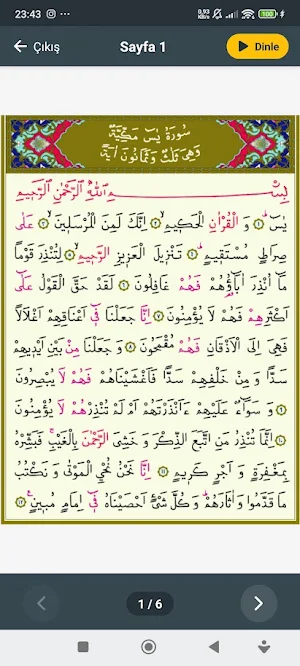 23:43
0,93 KB/s
100
Çıkış
Sayfa 1
Dinle
سُورَةُ يٰسٓ مَكِّيَّةٌ
وَهِيَ ثَلٰثٌ وَثَمَانُونَ اٰيَةً
بِسْمِ اللّٰهِ الرَّحْمٰنِ الرَّحِيمِ
يٰسٓ ﴿١﴾ وَالْقُرْاٰنِ الْحَكِيمِ ﴿٢﴾ اِنَّكَ لَمِنَ الْمُرْسَلِينَ ﴿٣﴾ عَلٰى
صِرَاطٍ مُسْتَقِيمٍ ﴿٤﴾ تَنْزِيلَ الْعَزِيزِ الرَّحِيمِ ﴿٥﴾ لِتُنْذِرَ قَوْمًا
مَا اُنْذِرَ اٰبَاؤُهُمْ فَهُمْ غَافِلُونَ ﴿٦﴾ لَقَدْ حَقَّ الْقَوْلُ عَلٰى
اَكْثَرِهِمْ فَهُمْ لَا يُؤْمِنُونَ ﴿٧﴾ اِنَّا جَعَلْنَا فِى اَعْنَاقِهِمْ اَغْلَالًا
فَهِىَ اِلَى الْاَذْقَانِ فَهُمْ مُقْمَحُونَ ﴿٨﴾ وَجَعَلْنَا مِنْ بَيْنِ اَيْدِيهِمْ
سَدًّا وَمِنْ خَلْفِهِمْ سَدًّا فَاَغْشَيْنَاهُمْ فَهُمْ لَا يُبْصِرُونَ
﴿٩﴾ وَسَوَاءٌ عَلَيْهِمْ ءَاَنْذَرْتَهُمْ اَمْ لَمْ تُنْذِرْهُمْ لَا يُؤْمِنُونَ
﴿١٠﴾ اِنَّمَا تُنْذِرُ مَنِ اتَّبَعَ الذِّكْرَ وَخَشِىَ الرَّحْمٰنَ بِالْغَيْبِ فَبَشِّرْهُ
بِمَغْفِرَةٍ وَاَجْرٍ كَرِيمٍ ﴿١١﴾ اِنَّا نَحْنُ نُحْيِ الْمَوْتٰى وَنَكْتُبُ
مَا قَدَّمُوا وَاٰثَارَهُمْ وَكُلَّ شَىْءٍ اَحْصَيْنَاهُ فِى اِمَامٍ مُبِينٍ ﴿١٢﴾
1 / 6